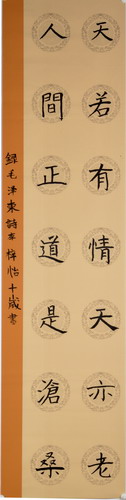 天若有情天亦老
人間正道是滄桑
錄毛澤東詩李梓怡十歲書